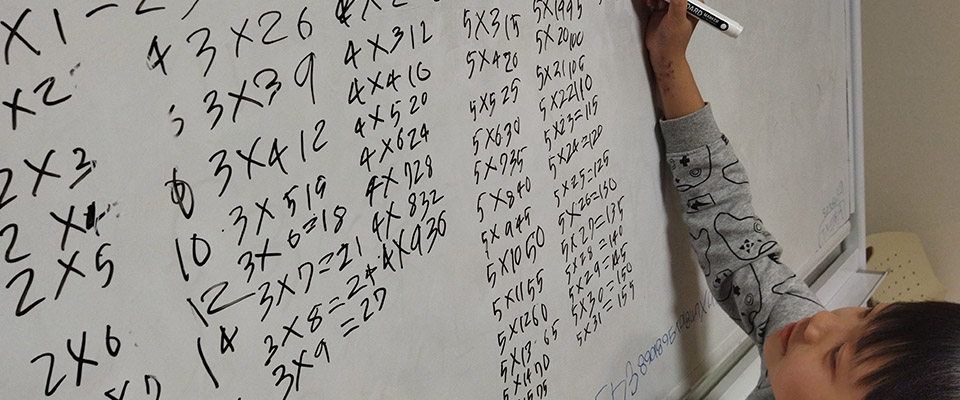 X 1
X 2
2 X 3
2 X 4
2 X 5
2 X 6
X 7
4
6
10
12
14
3 X 2 6
3 X 3 9
3 X 4 12
3 X 5 15
3 X 6 = 18
3 X 7 = 21
3 X 8 = 24
3 X 9 = 27
4 X 3 12
4 X 4 16
4 X 5 20
4 X 6 24
4 X 7 28
4 X 8 32
4 X 9 36
5 X 3 15
5 X 4 20
5 X 5 25
5 X 6 30
5 X 7 35
5 X 8 40
5 X 9 45
5 X 10 50
5 X 11 55
5 X 12 60
5 X 13 65
5 X 14 70
5 X 19 95
5 X 20 100
5 X 21 105
5 X 22 110
5 X 23 = 115
5 X 24 = 120
5 X 25 = 125
5 X 26 = 130
5 X 27 = 135
5 X 28 = 140
5 X 29 = 145
5 X 30 = 150
5 X 31 = 155